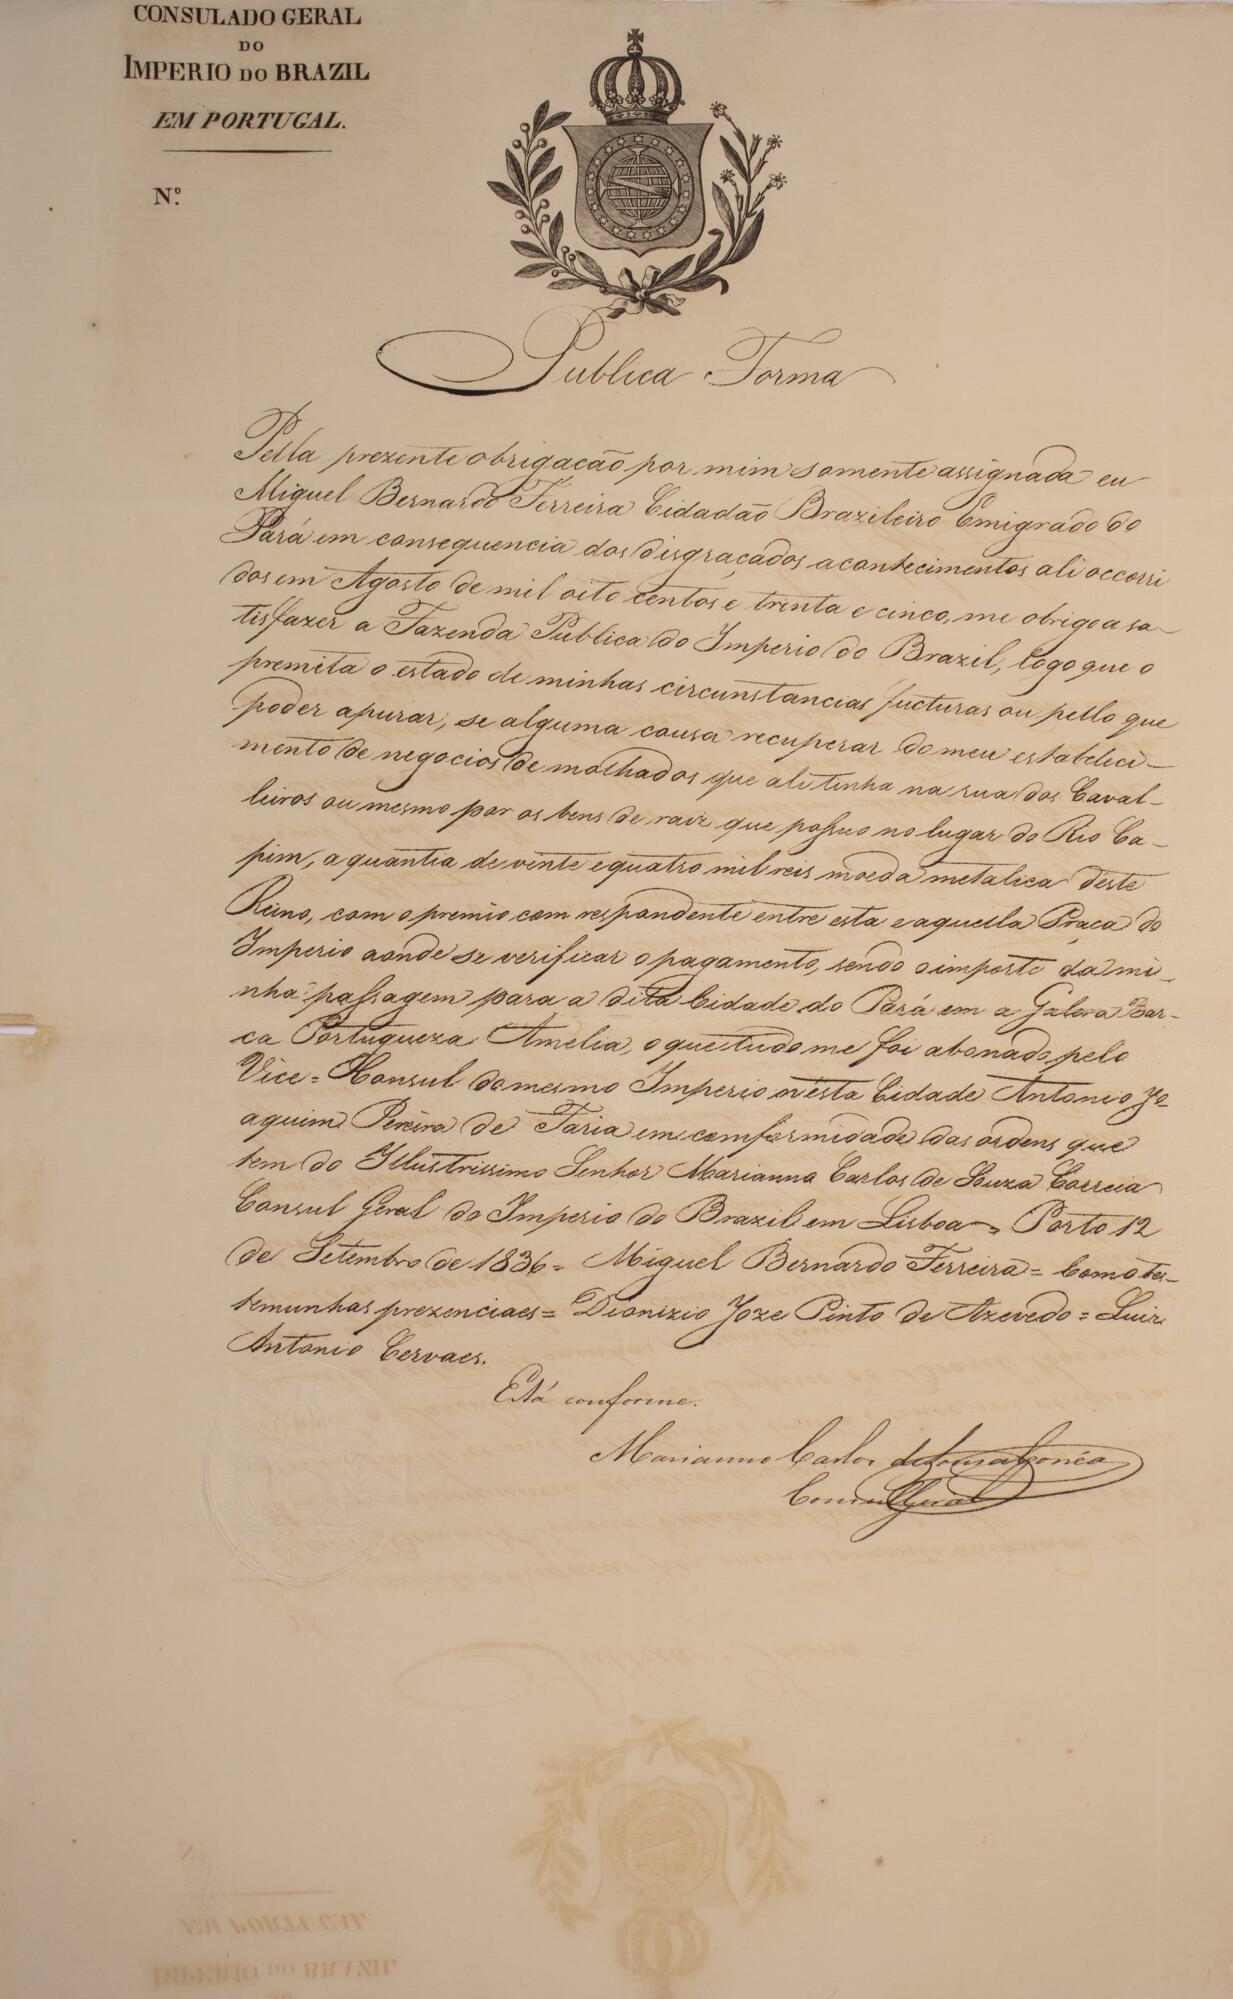 CONSULADO GERAL
DO
IMPERIO DO BRAZIL
EM PORTUGAL.
N.º
Publica Forma
Pella prezente obrigacão por mim somente assignada eu
Miguel Bernardo Ferreira Cidadão Brazileiro Emigrado do
Pará em consequencia dos disgraçados acontecimentos ali occorri
dos em Agosto de mil oito centos e trinta e cinco, me obrigo a sa-
tisfazer a Fazenda Publica do Imperio do Brazil, logo que o
premita o estado de minhas circunstancias fucturas ou pello que
poder apurar, se alguma cousa recuperar do meu estabeleci-
mento de negocios de molhados que ali tinha na rua dos Caval-
leiros ou mesmo por os bens de raiz que possuo no lugar do Rio Ca-
pim, a quantia de vinte e quatro mil reis moeda metalica deste
Reino, com o premio com respondente entre esta e aquella Praça do
Imperio aonde se verificar o pagamento, sendo o importe da mi-
nha passagem para a dita Cidade do Pará em a Galera Bar-
ca Portugueza Amelia, o que tudo me foi abonado pelo
Vice=Konsul do mesmo Imperio n'esta Cidade Antonio Jo-
aquim Pereira de Faria em comformidade das ordens que
tem do Illustrissimo Senhor Marianno Carlos de Souza Correia
Consul Geral do Imperio do Brazil em Lisboa. Porto 12
de Setembro de 1836= Miguel Bernardo Ferreira= Como tes-
temunhas prezenciaes= Dionizio Joze Pinto de Azevedo= Luiz
Antonio Cervaes.
Está conforme.
Marianno Carlos de Souza Corrêa
Consul Geral